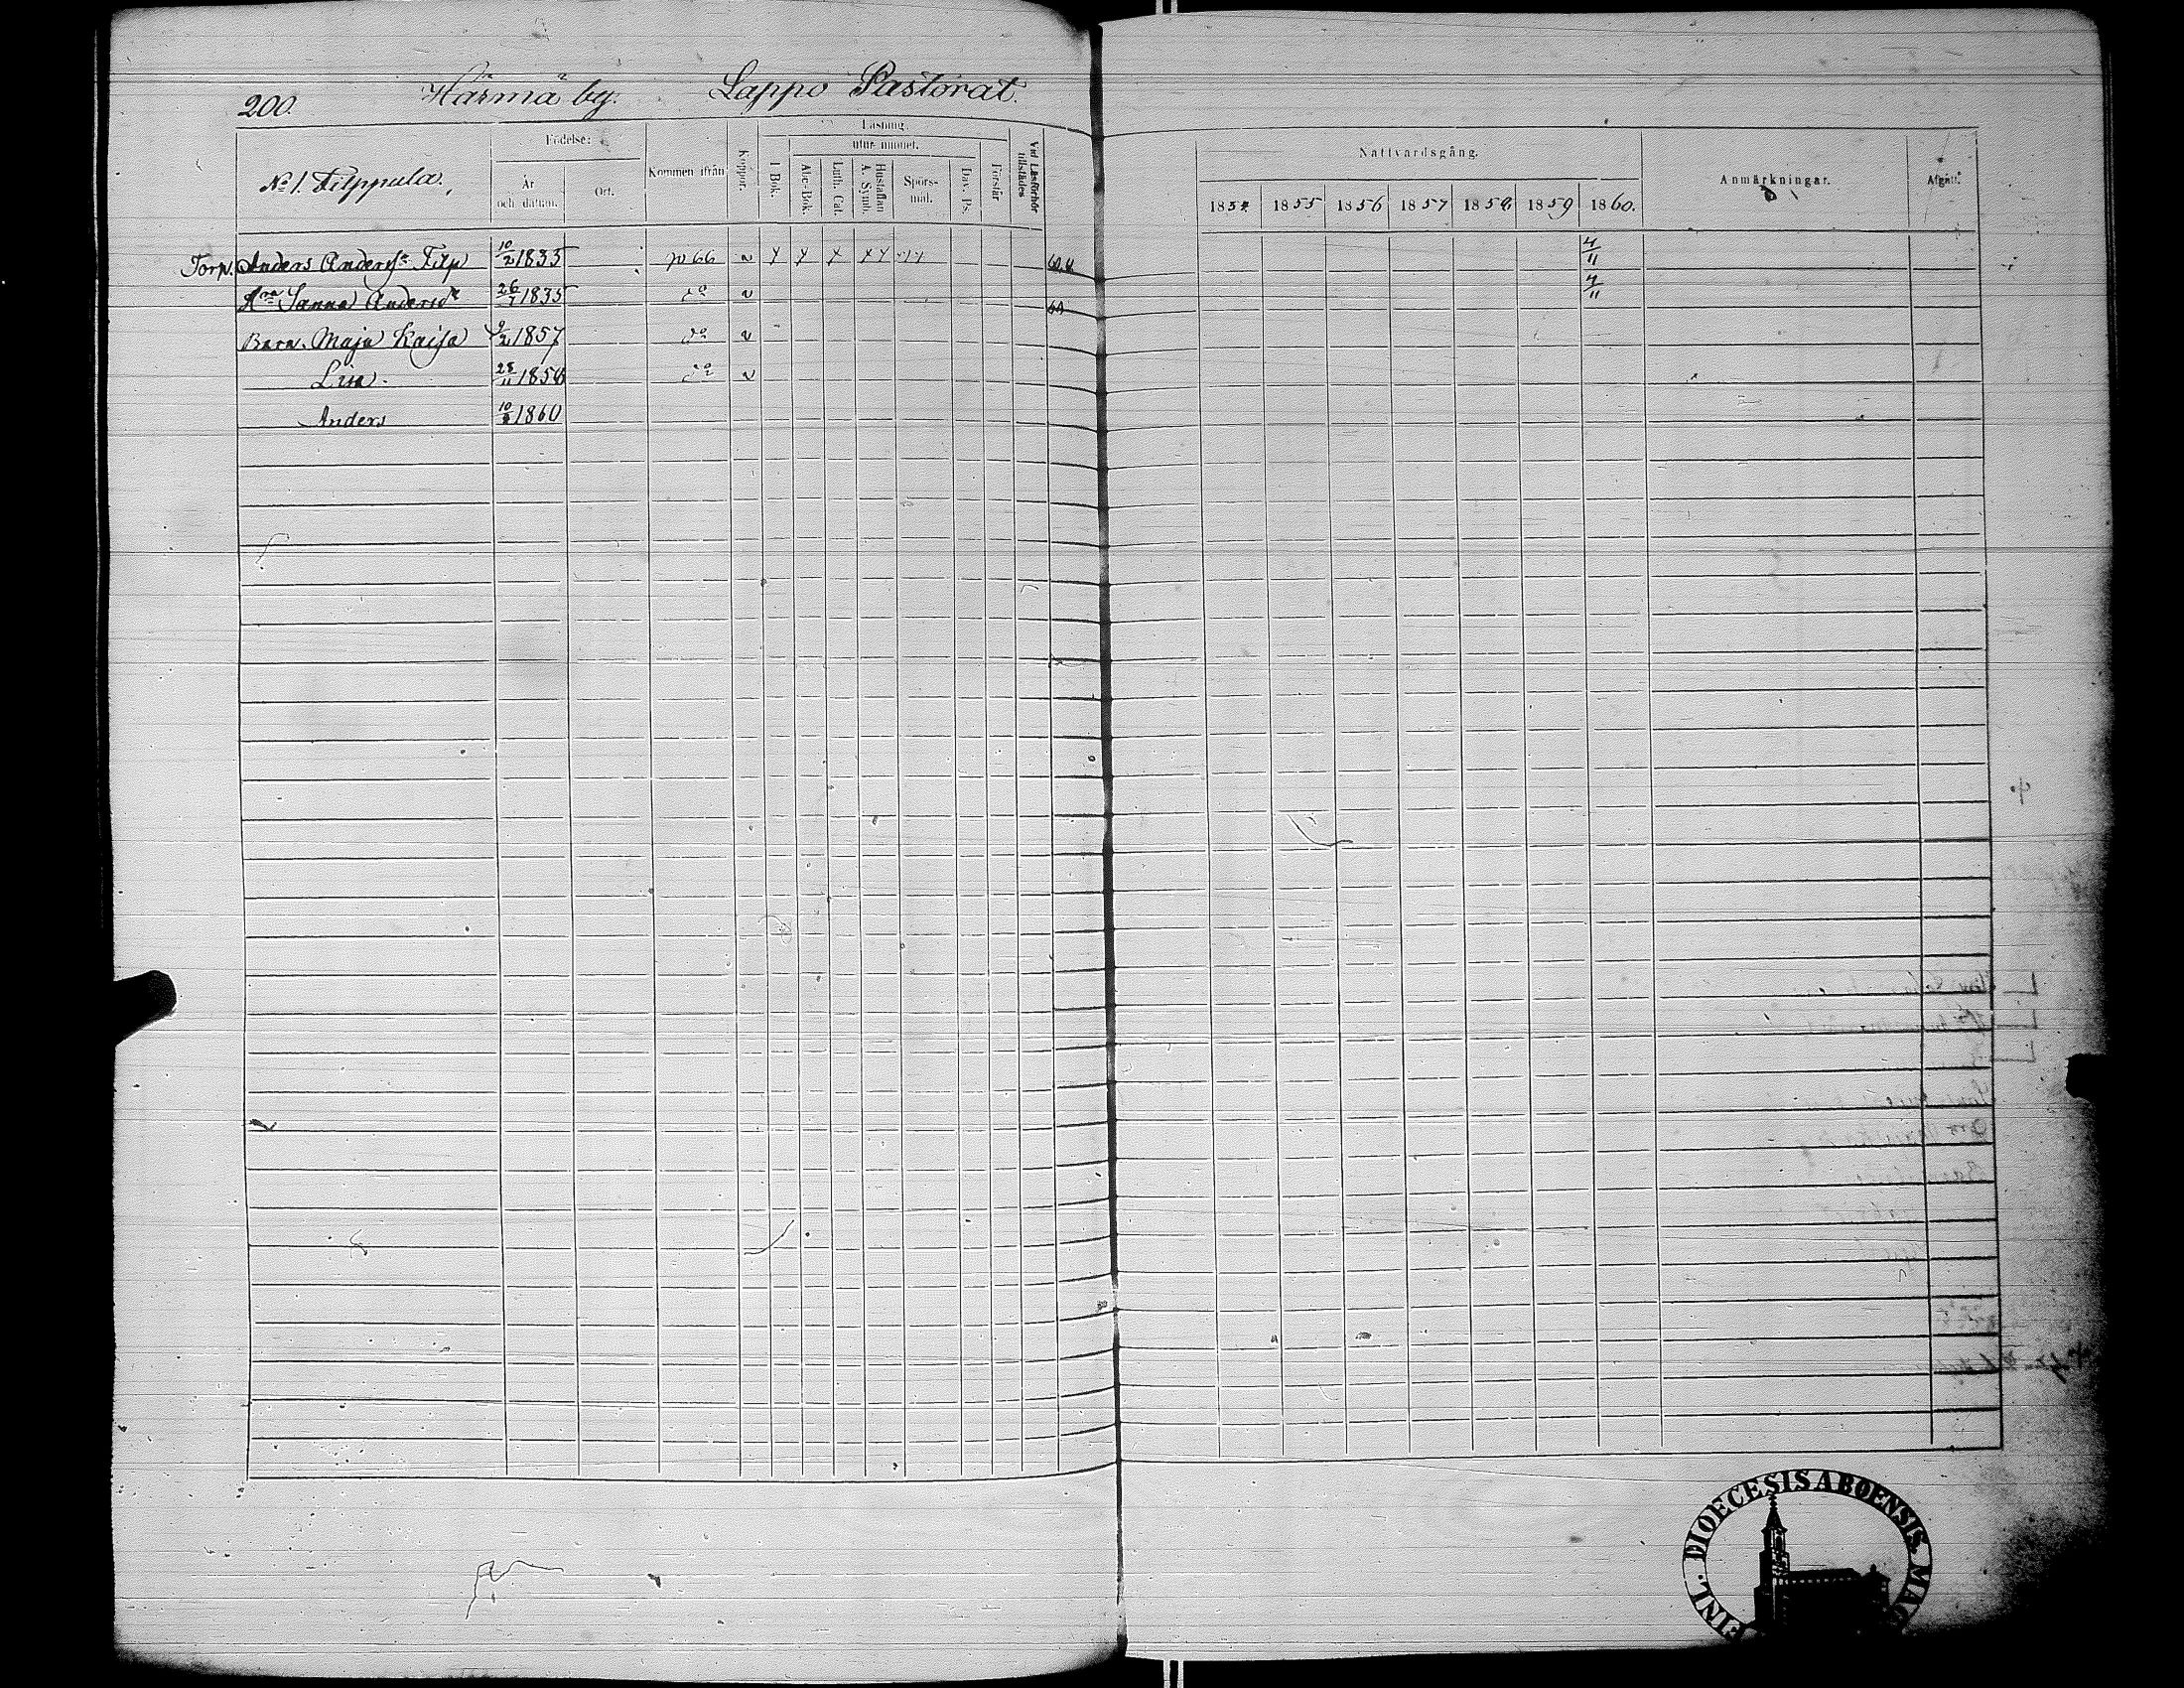 200. Härmä by. Lappo Pastorat.
No 1. Filppula.
Födelse:
År och datum.
Ort.
Kommen ifrån
Koppor.
Läsning.
utur minnet.
I Bok.
Abc-Bok.
Luth. Cat.
Hustaflan A. Symb.
Spörs-mål.
Dav. Ps.
Förstår
Vid Läsförhör tillstädes
Nattvardsgång.
1854. 1855 1856 1857 1858 1859 1860.
Anmärkningar.
Afgått.
Torp. Anders Anderss. Filp 10/2 1835 p 66 v 4/11
Hru Sanna Andersdr 26/7 1835 do v 60 4/11
Barn. Maja Kaisa 9/2 1857 do v
Lisa. 28/11 1858 do v
Anders 10/9 1860
FINL. DIOECESIS ABOENSIS. MAG